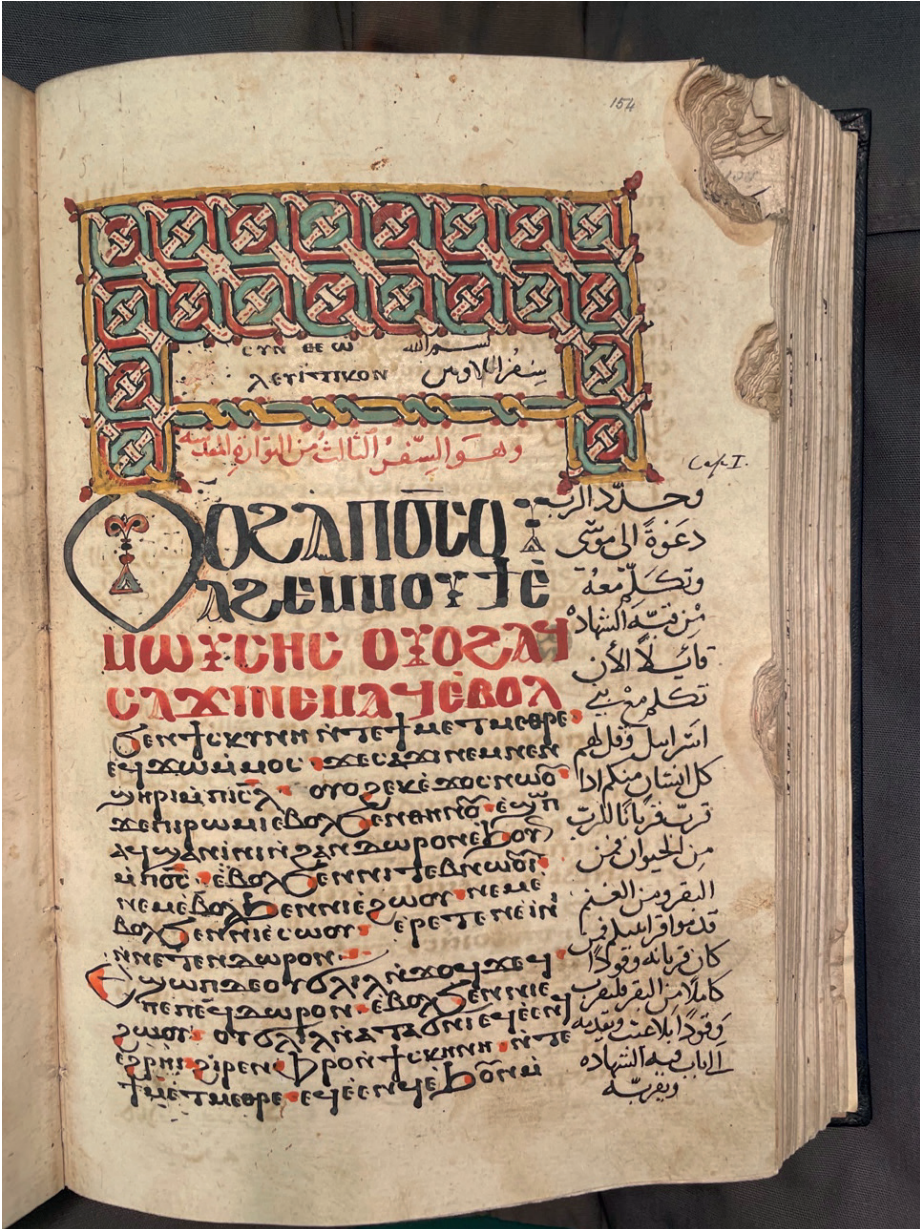 154
ⲥⲩⲛ ⲑⲉⲱ
بسم الله
ⲗⲉⲩⲓⲧⲓⲕⲟⲛ
سفر اللاويين
وهو السفر الثالث من التوراة المقدسة
Cap I.
ⲟⲩⲟϩ ⲁⲡϭⲟⲓⲥ ⲟ
ⲁϩⲉⲙ ⲙⲟⲩϯ ⲉ̀
ⲙⲱⲩⲥⲏⲥ ⲟⲩⲟϩ ⲁϥ
ⲥⲁϫⲓ ⲛⲉⲙⲁϥ ⲉ̀ⲃⲟⲗ
ϧⲉⲛ ϯⲥⲕⲩⲛⲏ ⲛ̀ⲧⲉ ϯⲙⲉⲧⲙⲉⲑⲣⲉ
ⲉϥϫⲱ ⲙ̀ⲙⲟⲥ ϫⲉ ⲥⲁϫⲓ ⲛⲉⲙ ⲛⲉⲛ
ϣⲏⲣⲓ ⲙ̀ⲡⲓⲥⲗ ⲟⲩⲟϩ ⲉⲕⲉ̀ϫⲟⲥ ⲛⲱⲟⲩ
ϫⲉ ⲡⲓⲣⲱⲙⲓ ⲉⲃⲟⲗ ϧⲉⲛ ⲑⲏⲛⲟⲩ ⲉϣⲱⲡ
ⲁϥϣⲁⲛⲓⲛⲓ ⲛ̀ϩⲁⲛⲇⲱⲣⲟⲛ ⲉϧⲟⲩⲛ
ⲙ̀ⲡϭⲟⲓⲥ ⲉⲃⲟⲗ ϧⲉⲛ ⲛⲓⲧⲉⲃⲛⲱⲟⲩⲓ
ⲛⲉⲙ ⲉ̀ⲃⲟⲗ ϧⲉⲛ ⲛⲓⲉ̀ϩⲱⲟⲩ ⲛⲉⲙ ⲉ̀
ⲃⲟⲗ ϧⲉⲛ ⲛⲓⲉ̀ⲥⲱⲟⲩ ⲉⲣⲉⲧⲉⲛⲉ̀ⲓⲛⲓ
ⲛ̀ⲛⲉⲧⲉⲛⲇⲱⲣⲟⲛ
ⲉϣⲱⲡ ⲇⲉ ⲟⲩϭⲗⲓⲗ
ⲡⲉ ⲡⲉϥⲇⲱⲣⲟⲛ ⲉⲃⲟⲗ ϧⲉⲛ ⲛⲓⲉ
ϩⲱⲟⲩ ⲟⲩϭⲗⲓⲗ ⲛ̀ⲁⲧⲁϭⲛⲓ ⲉϥⲉ̀ⲉⲛϥ
ϩⲓⲣⲉⲛ ⲫⲣⲟ ⲛ̀ϯⲥⲕⲩⲛⲏ ⲛ̀ⲧⲉ
ϯⲙⲉⲧⲙⲉⲑⲣⲉ ⲉϥⲉ̀ⲉⲛϥ ⲉ̀ϧⲟⲩⲛ
وجدد الرب
دعوة الى موسى
وتكلم معه
من قبة الشهاده
قائلا الأن
تكلم مع بني
اسراييل وقل لهم
كل انسان منكم اذا
قرب قربانا للرب
من الحيوان فمن
البقر ومن الغنم
قدموا قرابينكم فمن
كان قربانه وقودا
كاملا من البقر فليقرب
وقودا بلا عيب ويقدمه
الى باب قبة الشهاده
ويقربه